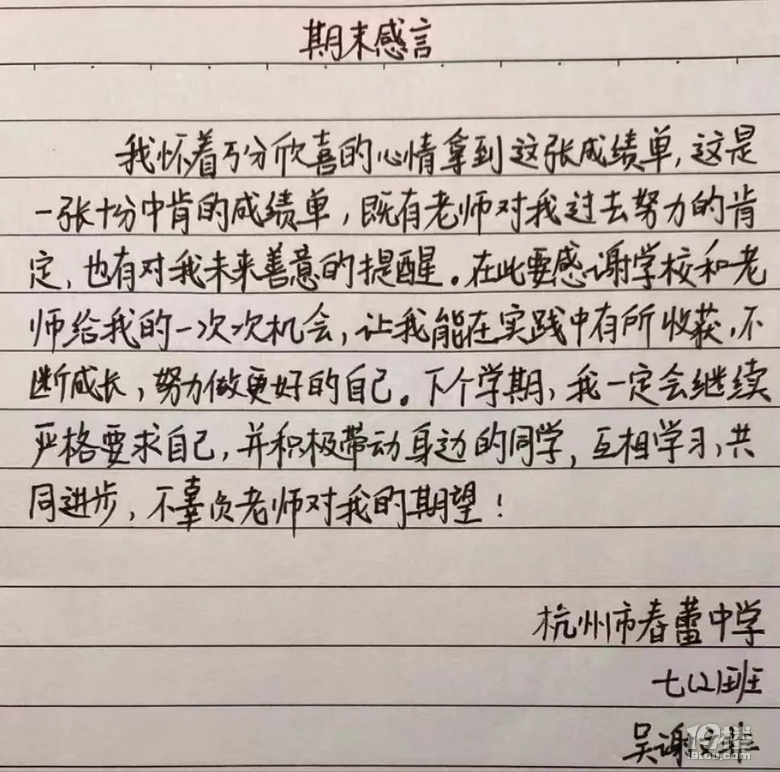 期末感言
我怀着万分欣喜的心情拿到这张成绩单，这是
一张十分中肯的成绩单，既有老师对我过去努力的肯
定，也有对我未来善意的提醒。在此要感谢学校和老
师给我的一次次机会，让我能在实践中有所收获，不
断成长，努力做更好的自己。下个学期，我一定会继续
严格要求自己，并积极带动身边的同学，互相学习，共
同进步，不辜负老师对我的期望！
杭州市春蕾中学
七(2)班
吴谢文